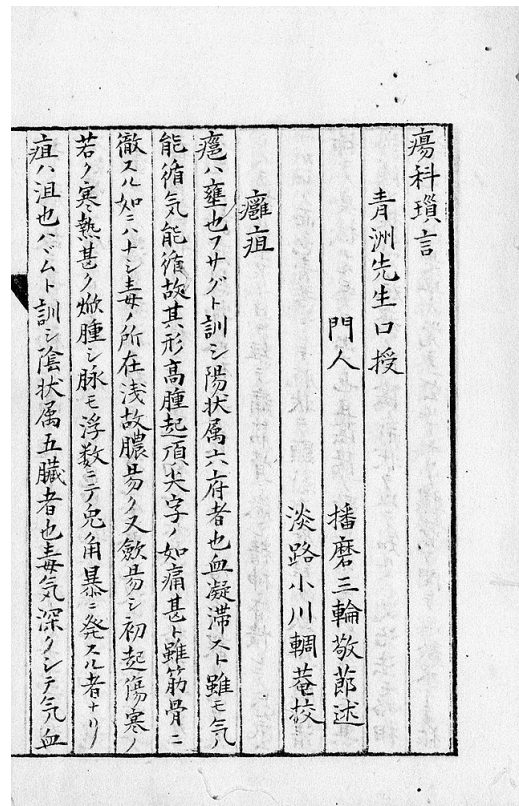 瘍科瑣言
青洲先生口授
門人
播磨三輪敬節述
淡路小川輖菴校
癰疽
癰ハ壅也フサグト訓シ陽状属六府者也血凝滞スト雖モ気
能循気能循故其形高腫起頂ト尖字ノ如痛甚ト雖筋骨ニ
徹スル如ニハナシ毒ノ所在浅故膿易ク又斂易シ初起傷寒ノ
若ク寒熱甚ク焮腫シ脉モ浮数ニテ兎角暴ニ発スル者ナリ
疽ハ沮也ハヾムト訓シ陰状属五臓者也毒気深クシテ気血